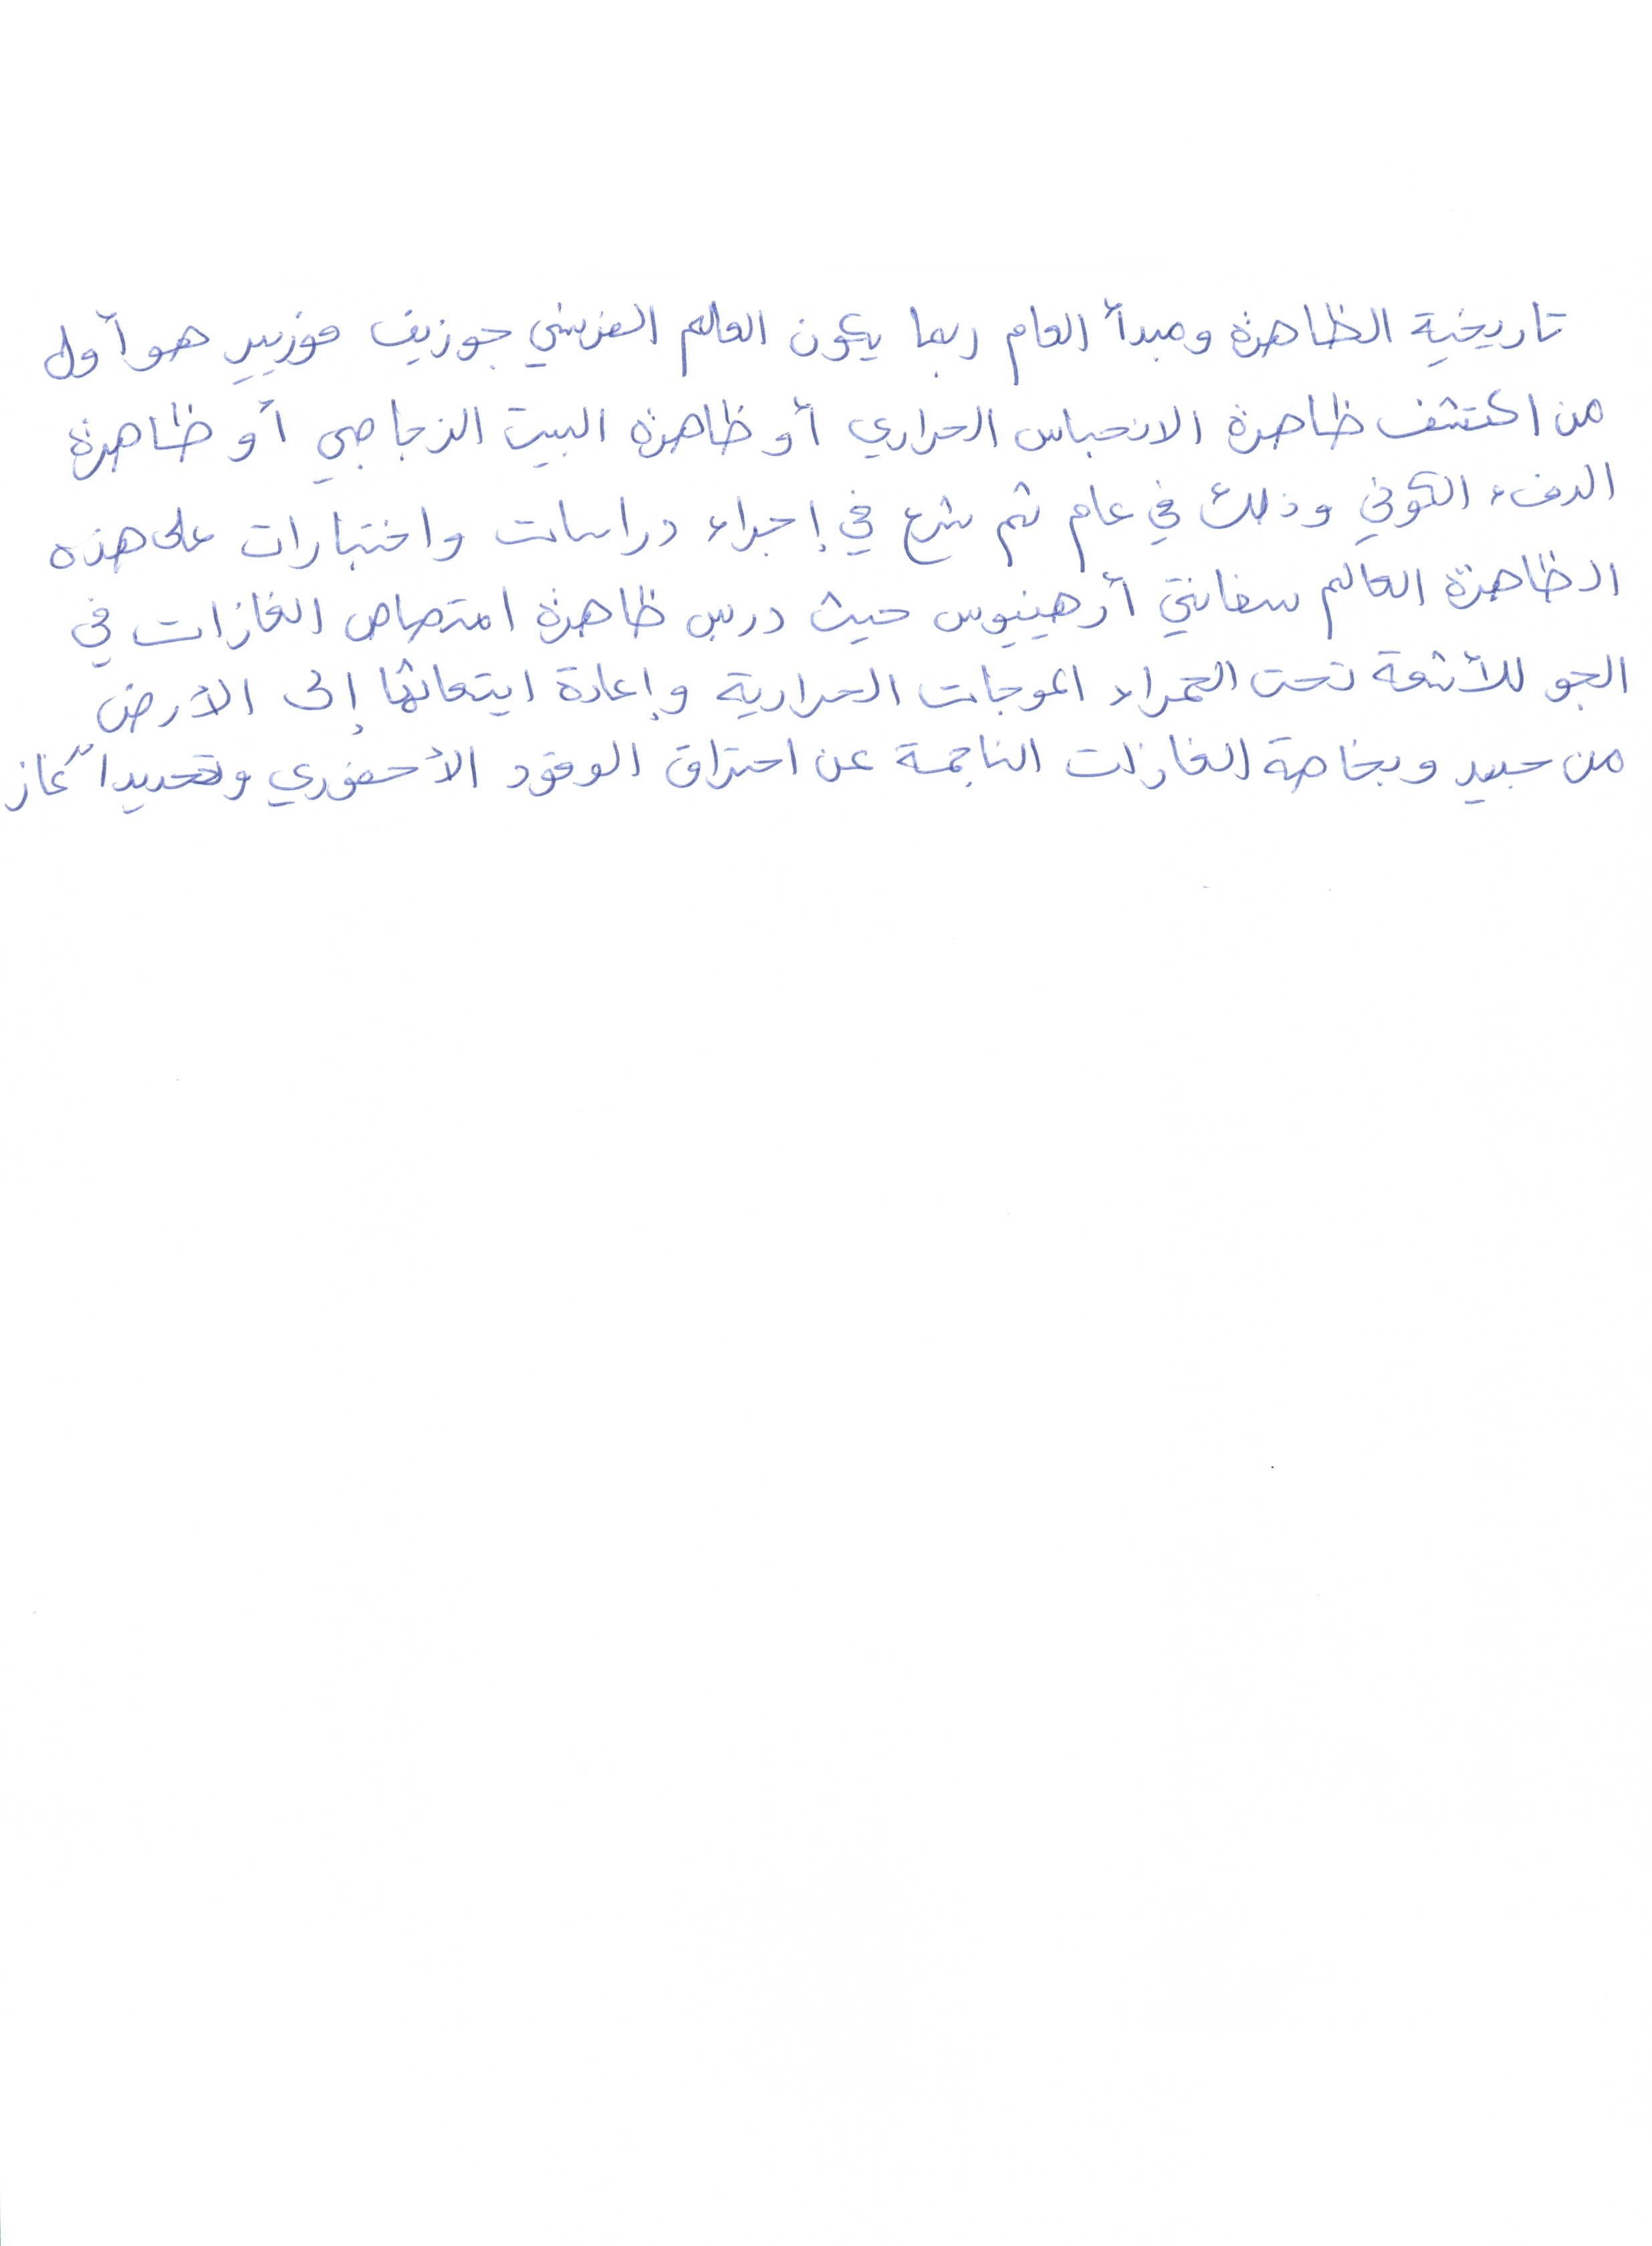 تاريخية الظاهرة ومبدأ العام ربما يكون العالم الفرنسي جوزيف فوزيير هو أول
من اكتشف ظاهرة الانحباس الحراري أو ظاهرة البيت الزجاجي أو ظاهرة
الدفء الكوني وذلك في عام ثم شرع في إجراء دراسات واختبارات على هذه
الظاهرة العالم سفانتي أرهينيوس حيث درس ظاهرة امتصاص الغازات في
الجو للأشعة تحت الحمراء الموجات الحرارية وإعادة ابتعاثها إلى الأرض
من جديد وبخاصة الغازات الناجمة عن احتراق الوقود الأحفوري وتحديداً غاز